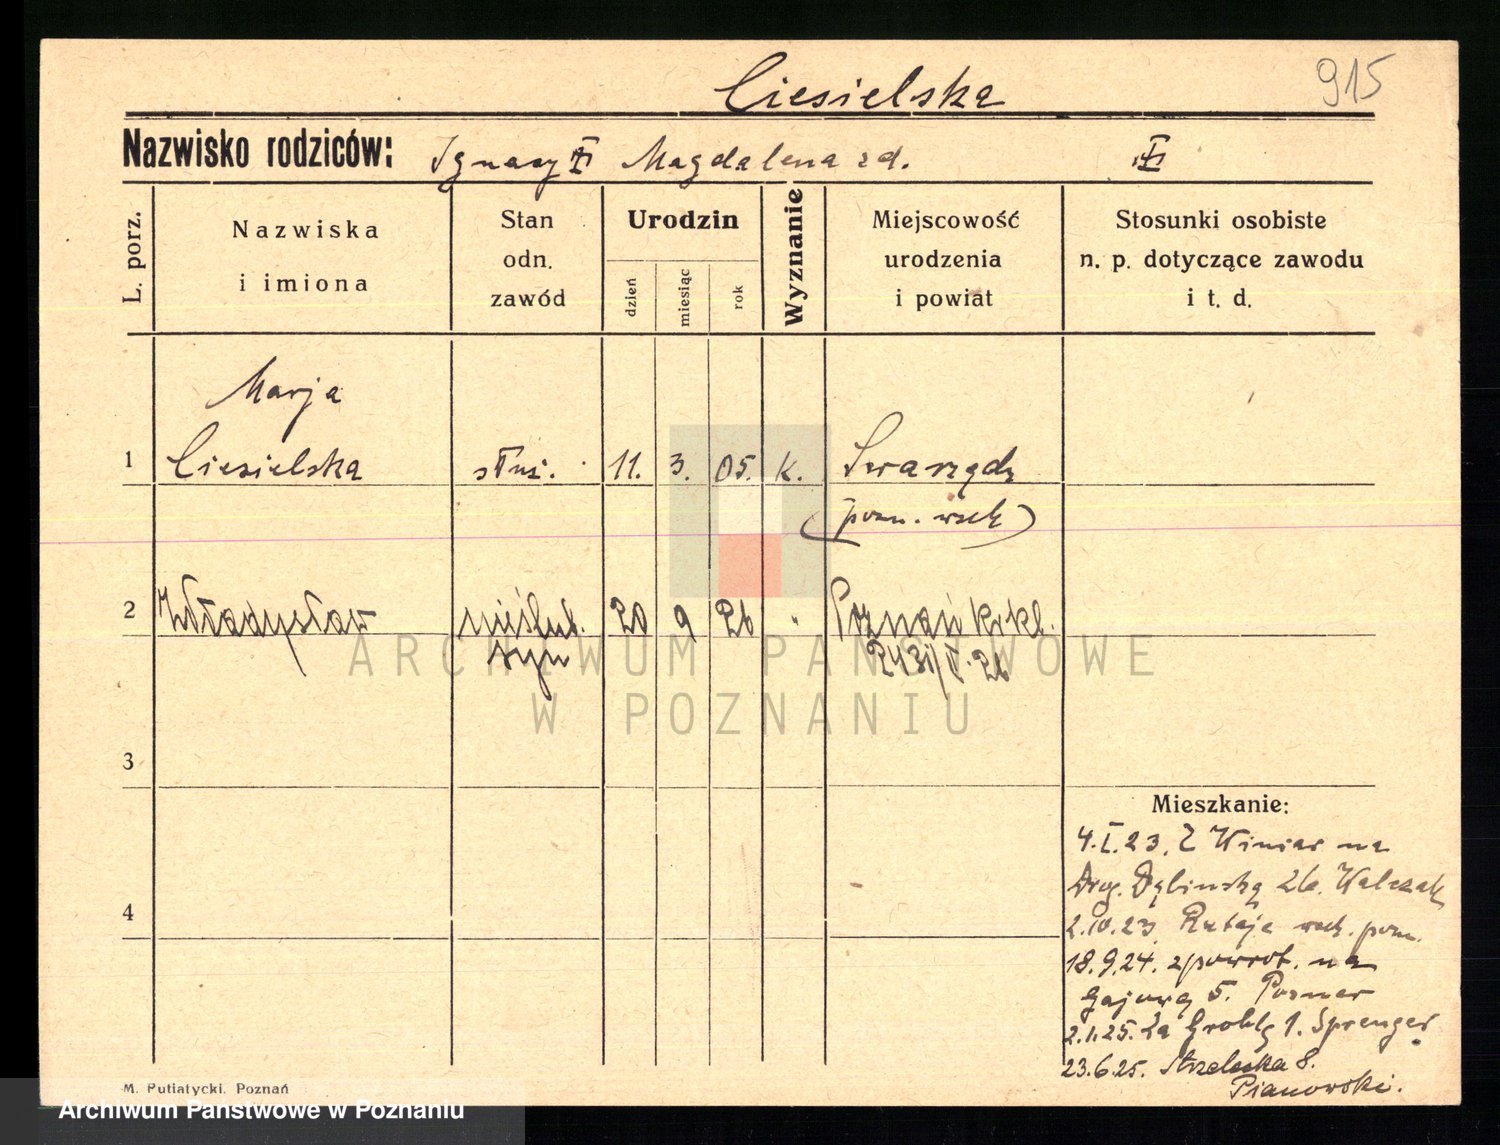 Ciesielska
915
Nazwisko rodziców: Ignacy Magdalena zd.
L. porz.
Nazwiska
i imiona
Stan
odn.
zawód
Urodzin
dzień
miesiąc
rok
Wyznanie
Miejscowość
urodzenia
i powiat
Stosunki osobiste
n. p. dotyczące zawodu
i t. d.
Marja
1 Ciesielska służ. 11. 3. 05. k. Swarzędz
(pozn. wsch)
2 Władysław nieślub. 20 9 26 " Poznań
syn
3
4
Mieszkanie:
4.I.23. Z Winiar na
Drog. Dębinską Walczak
2.IV.23 Rataje wsch. pozn.
18.9.24. zpowrot. na
Gajową 5. Pozner
2.1.25. Za Groblą 1. Sprenger
23.6.25. Strzelecka 8.
Pianowski.
M. Putiatycki, Poznań
ARCHIWUM PAŃSTWOWE
W POZNANIU
Archiwum Państwowe w Poznaniu